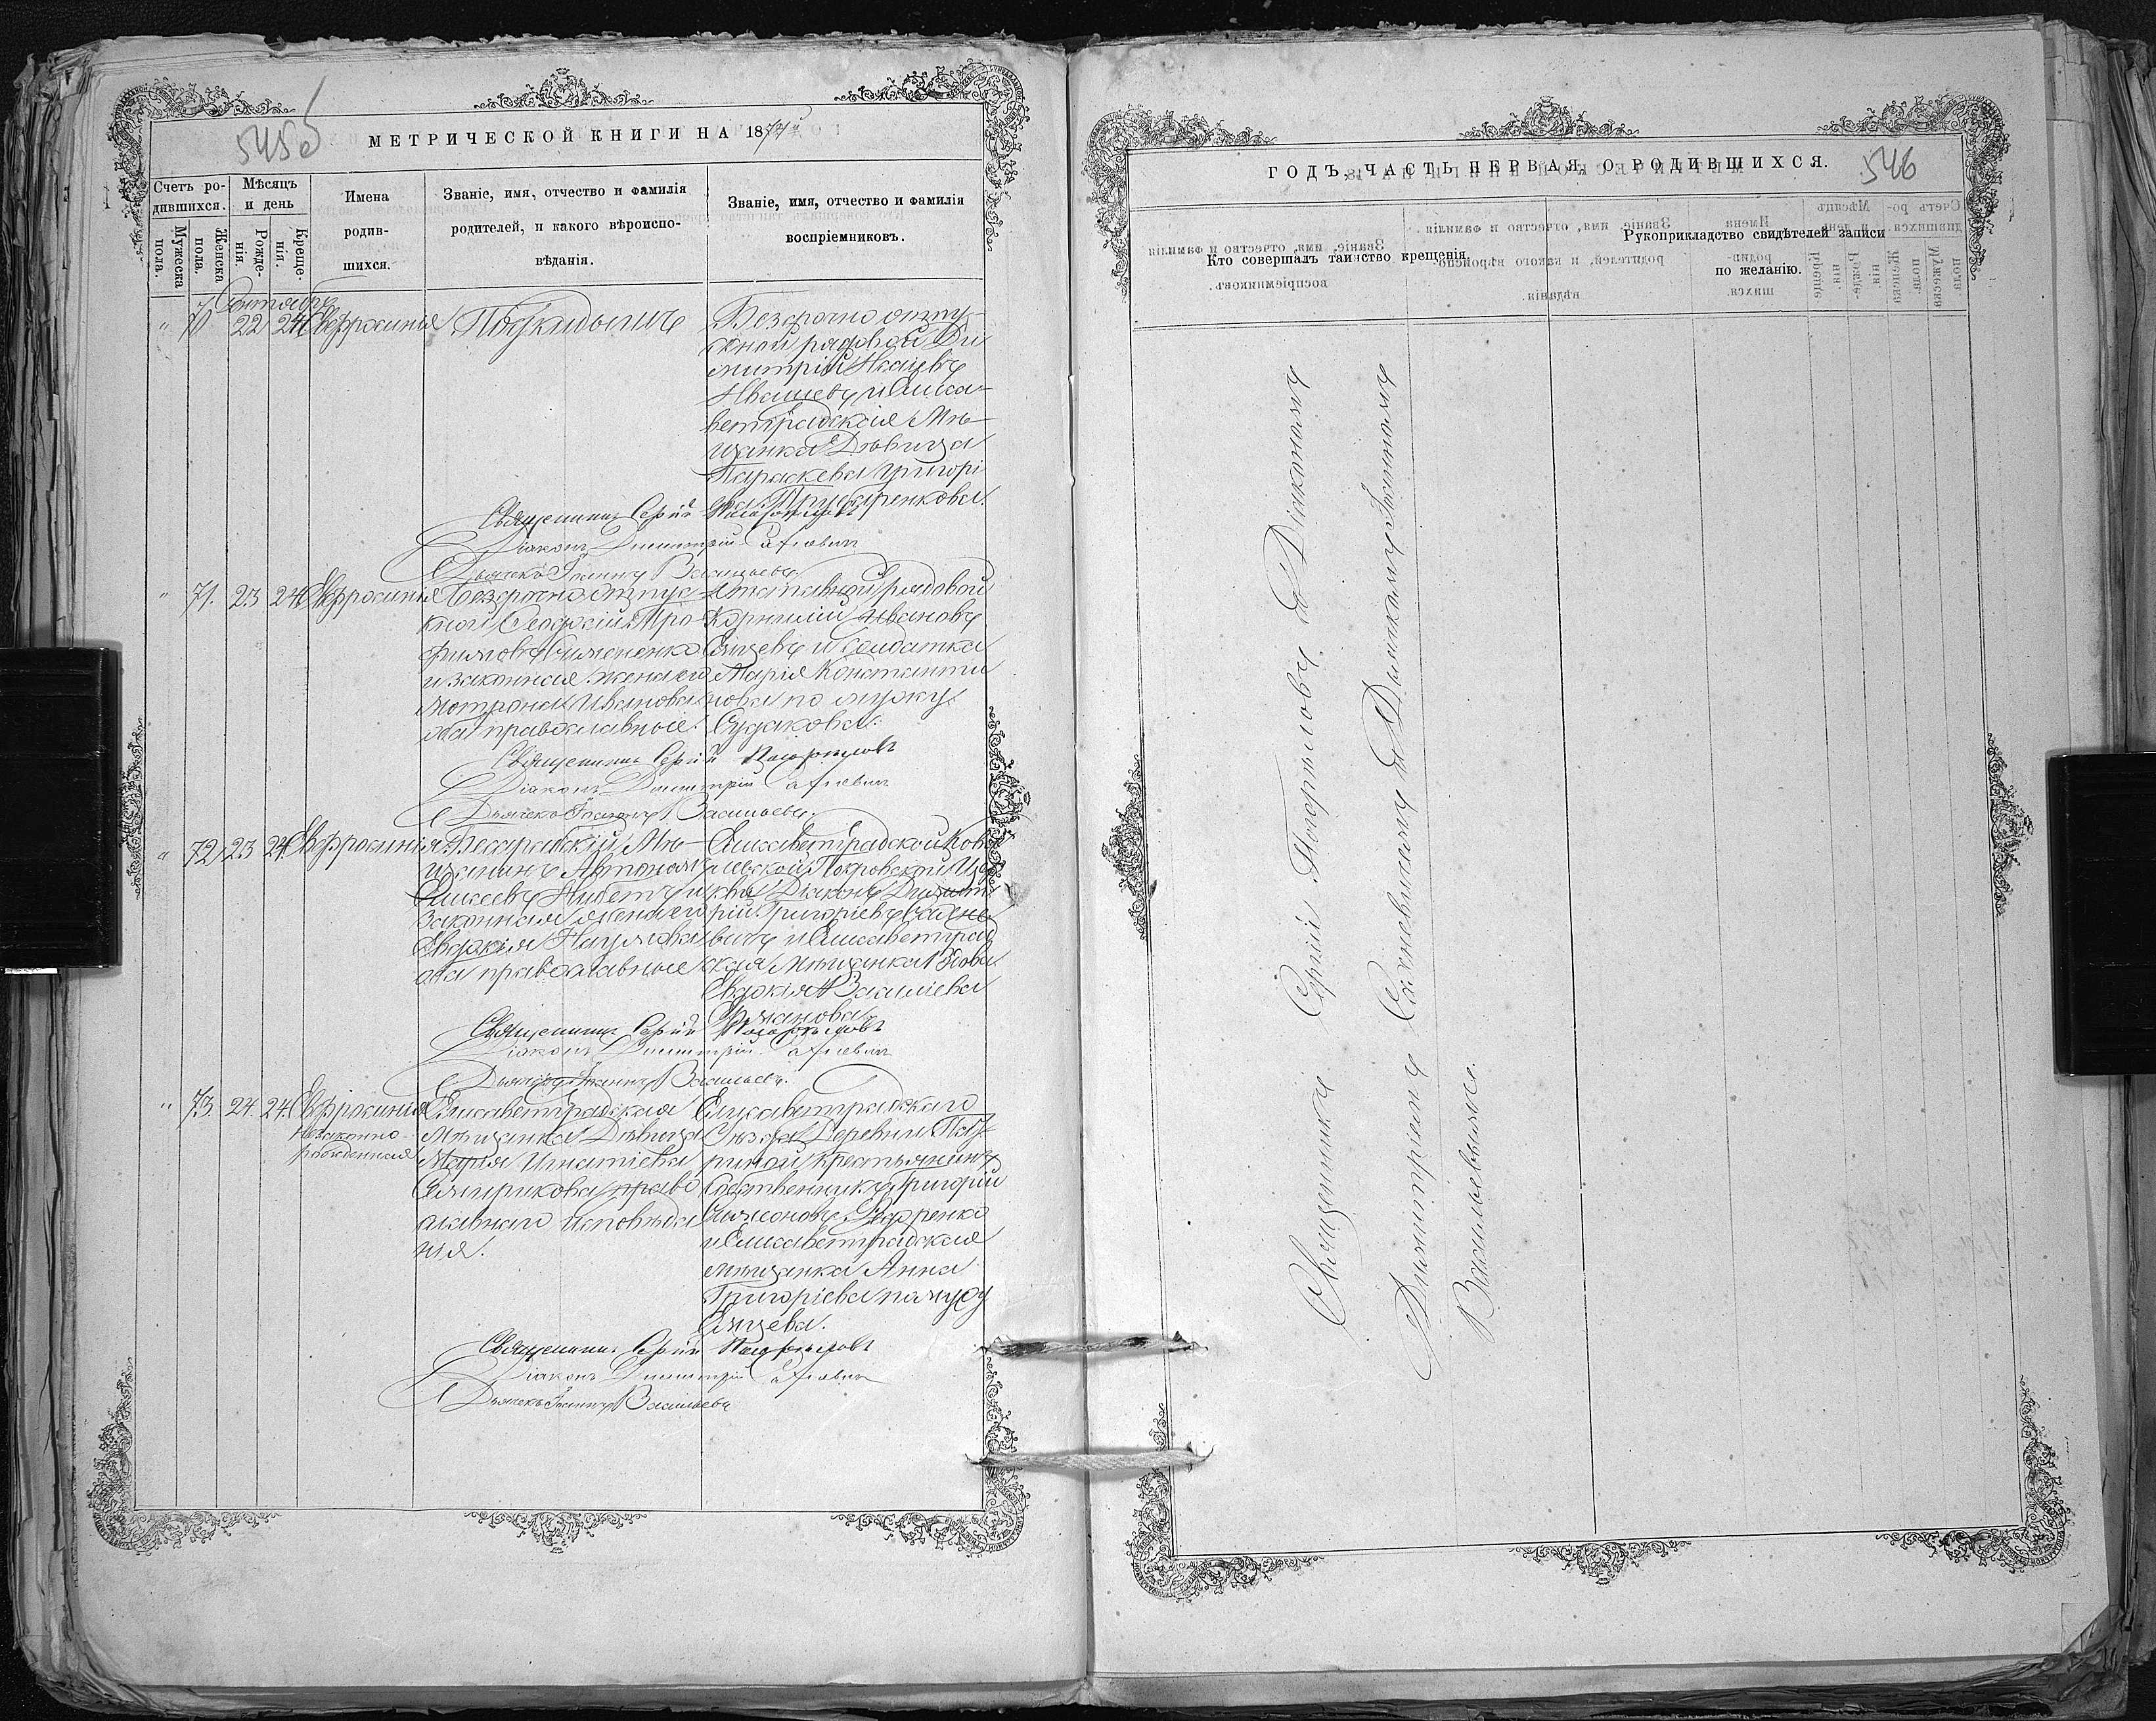 545 об
МЕТРИЧЕСКОЙ КНИГИ НА 1874й
Счетъ ро-
дившихся.
Мужеска
пола.
Женска
пола.
Мѣсяцъ
и день
Рожде-
нія.
Креще-
нія.
Имена
родив-
шихся.
Званіе, имя, отчество и фамилія
родителей, и какого вѣроиспо-
вѣданія.
Званіе, имя, отчество и фамилія
воспріемниковъ.
Сентябрь
" 70 22 24 Евфросинья
Подкидышъ
Безсрочно отпу
скной рядовой Ди
митрій
Ивашевъ и Елиса-
ветградская Мѣ-
щанка Дѣвица
Параскева Григорі
ева
Священникъ Сергій Погорѣловъ
Діаконъ Димитрій Сахневичъ
Дьячекъ Іоаннъ Васильевъ
" 71. 23 24 Евфросинья
Безсрочно отпус-
кной Тро-
фимовъ Симоненко
и законная жена его
Мотрона Иванова
оба православные.
Отставной рядовой
Корнилій Ивановъ
и Солдатка
Марія Константи
нова по мужу
Судакова.
Священникъ Сергій Погорѣловъ
Діаконъ Димитрій Сахневичъ
Дьячекъ Іоаннъ Васильевъ.
" 72 23 24 Евфросинія
Бесарабскій Мѣ-
щанинъ Автоном
Елисеевъ и
законная жена его
Евдокія Наумова
оба православные
Елисаветградской Кова
левской Покровской Цер
кви Діаконъ Димит
рій Григоріевъ Сахне
вичъ и Елисаветград
ская Мѣщанка Вдова
Евдокія Василіева
Священникъ Сергій Погорѣловъ
Діаконъ Димитрій Сахневичъ
Дьячекъ Іоаннъ Васильевъ.
" 73. 24. 24. Евфросинія
Незаконно-
рожденная
Елисаветградская
Мѣщанка Дѣвица
Марія Игнатіева
право
славнаго исповѣда
нія.
Елисаветградскаго
Уѣзда Деревни
крестьянинъ
Собственникъ Григорій
и Елисаветградская
мѣщанка Анна
Григоріева по мужу
Священникъ Сергій Погорѣловъ
Діаконъ Димитрій Сахневичъ
Дьячекъ Іоаннъ Васильевъ
ГОДЪ, ЧАСТЬ ПЕРВАЯ, О РОДИВШИХСЯ.
546
Кто совершалъ таинство крещенія.
Рукоприкладство свидѣтелей записи
по желанію.
Священникъ Сергій Погорѣловъ съ Діакономъ
Димитріемъ Сахневичемъ и Дьячкомъ Іоанномъ
Васильевымъ.